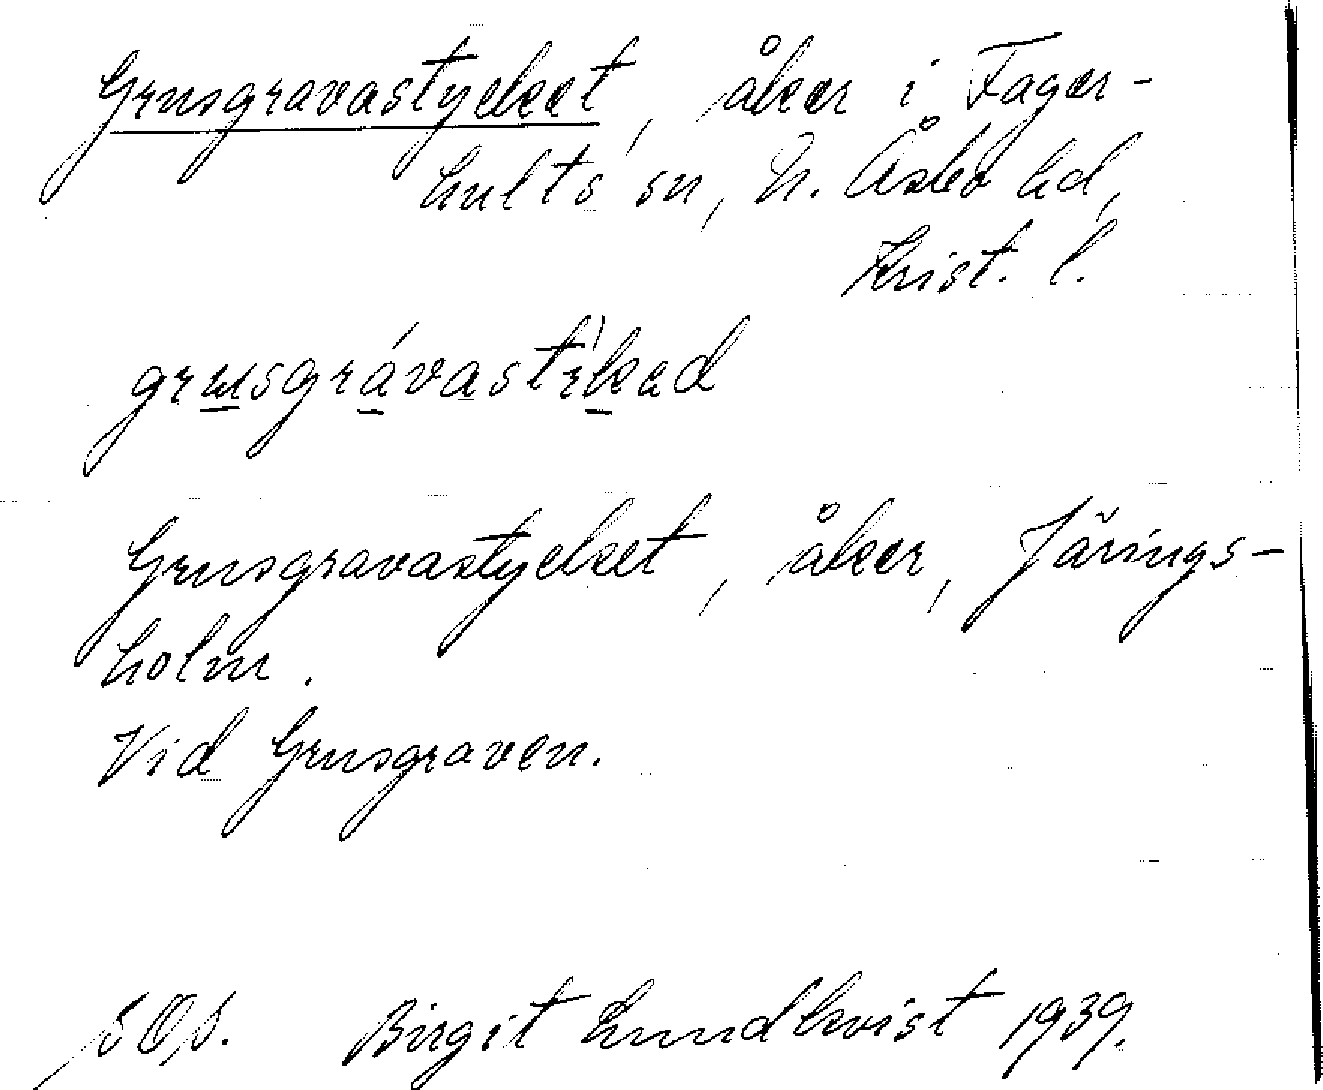 Grusgravastycket, åker i Fager-
hults sn, N. Åsbo hd,
Krist. l.
grusgrávastìkəd
Grusgravastycket, åker, Järings-
holm.
Vid Grusgraven.
Birgit Lundkvist 1939.